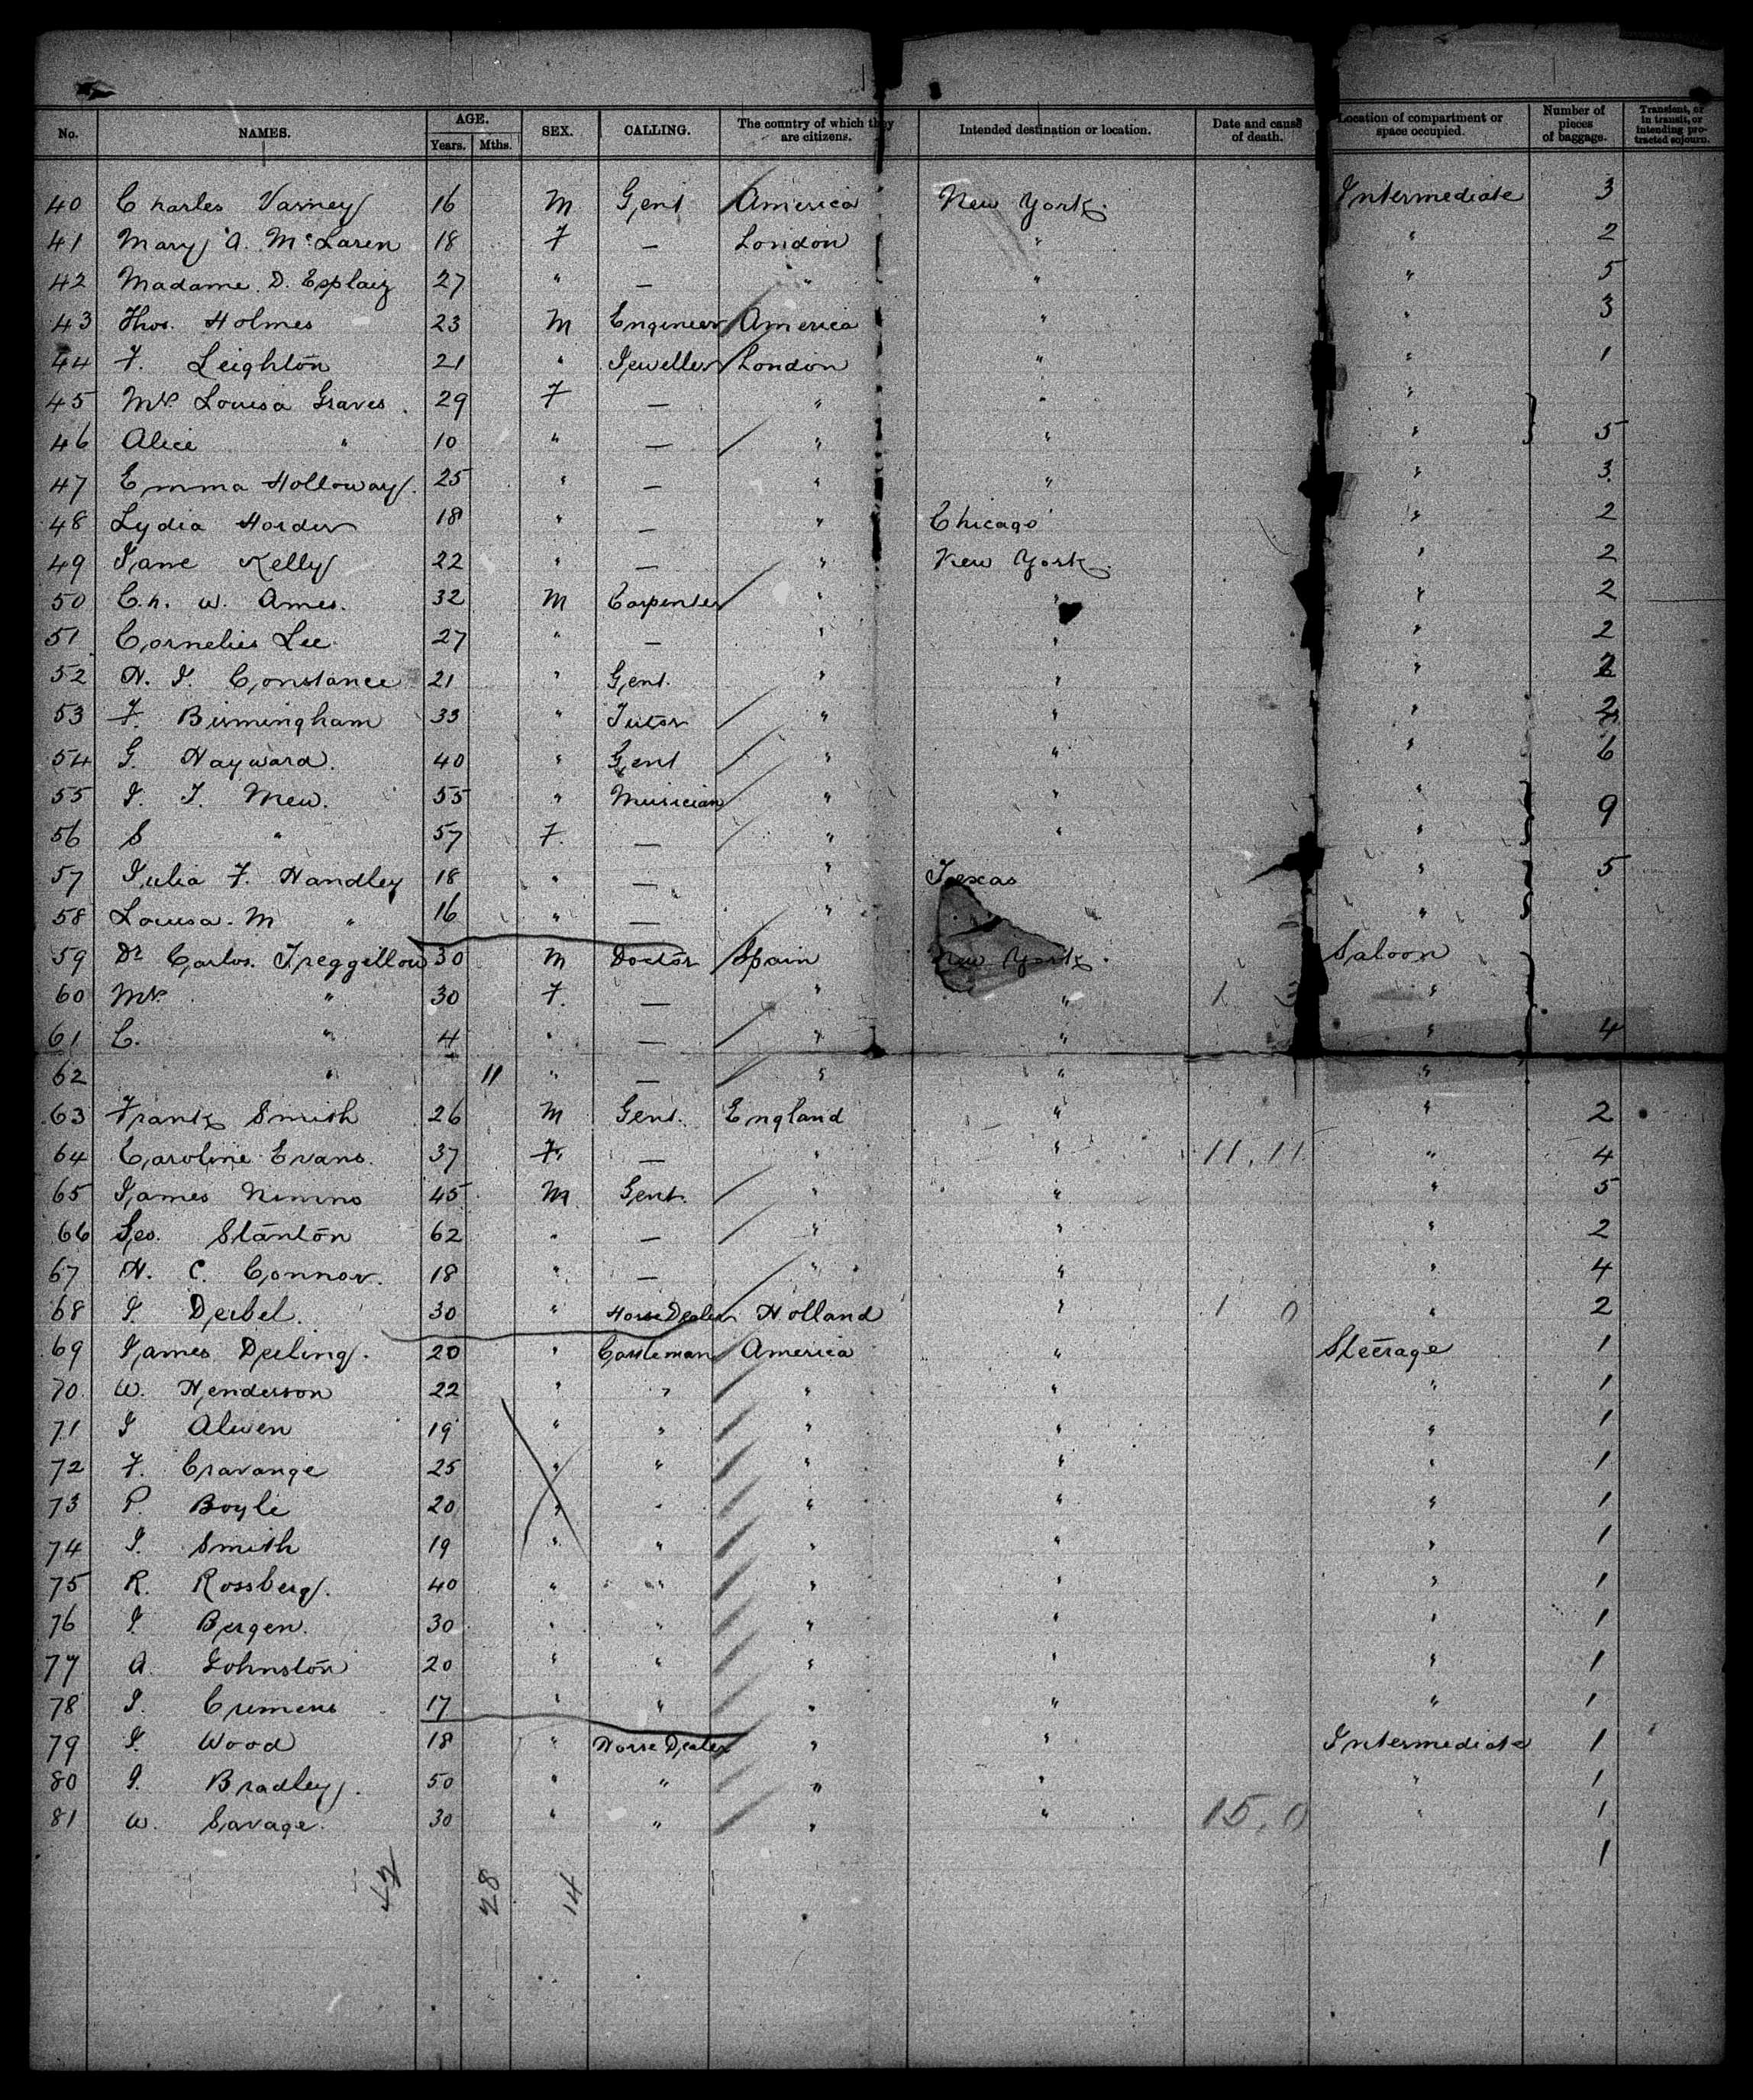 No. NAMES. AGE. Years. Mths. SEX. CALLING. The country of which they are citizens. Intended destination or location. Date and cause of death. Location of compartment or space occupied. Number of pieces of baggage. Transient, or in transit, or intending protracted sojourn.
40 Charles Varney 16 M Gent America New York. Intermediate 3
41 Mary A. McLaren 18 F — London " " 2
42 Madame. D. 27 " — " " " 5
43 Thos. Holmes 23 M Engineer America " " 3
44 F. Leighton 21 " Jeweller London " " 1
45 Mrs. Louisa Graves. 29 F — " " "
46 Alice " 10 " — " " " 5
47 Emma Holloway. 25 " — " " " 3
48 Lydia Horder 18 " — " Chicago " 2
49 Jane Kelly 22 " — " New York. " 2
50 Ch. W. Ames. 32 M Carpenter " " " 2
51 Cornelius Lee 27 " — " " " 2
52 H. J. Constance 21 " Gent. " " " 2
53 F. Birmingham 33 " Tutor " " " 2
54 G. Hayward. 40 " Gent " " " 6
55 J. J. Mew. 55 " Musician " " " 9
56 S " 57 F. — " " "
57 Julia F. Handley 18 " — " Texas " 5
58 Louisa. M " 16 " — " "
59 Dr Carlos. Treggellow 30 M Doctor Spain New York. Saloon
60 Mrs. " 30 F. — " " 1 3 "
61 C. " 4 " — " " " 4
62 " 11 " — " " "
63 Frank Smith 26 M Gent. England " " 2
64 Caroline Evans. 37 F. — " " 11.11 " 4
65 James Nimmo 45 M Gent. " " " 5
66 Geo. Stanton 62 " — " " " 2
67 H. C. Connor. 18 " — " " " 4
68 J. Deibel. 30 " Horse Dealer Holland " 1 0 " 2
69 James Deeling. 20 " Cattleman America " Steerage 1
70 W. Henderson 22 " " " " " 1
71 J Alwen 19 " " " " " 1
72 F. Cravange 25 " " " " " 1
73 P. Boyle 20 " " " " " 1
74 J. Smith 19 " " " " " 1
75 R. Rossberg. 40 " " " " " 1
76 J. Bergen. 30 " " " " " 1
77 A. Johnston 20 " " " " " 1
78 J. Cremens 17 " " " " " 1
79 J. Wood 18 " Horse Dealer " " Intermediate 1
80 J. Bradley. 50 " " " " " 1
81 W. Savage. 30 " " " " 15.0 " 1
1
42 28 14